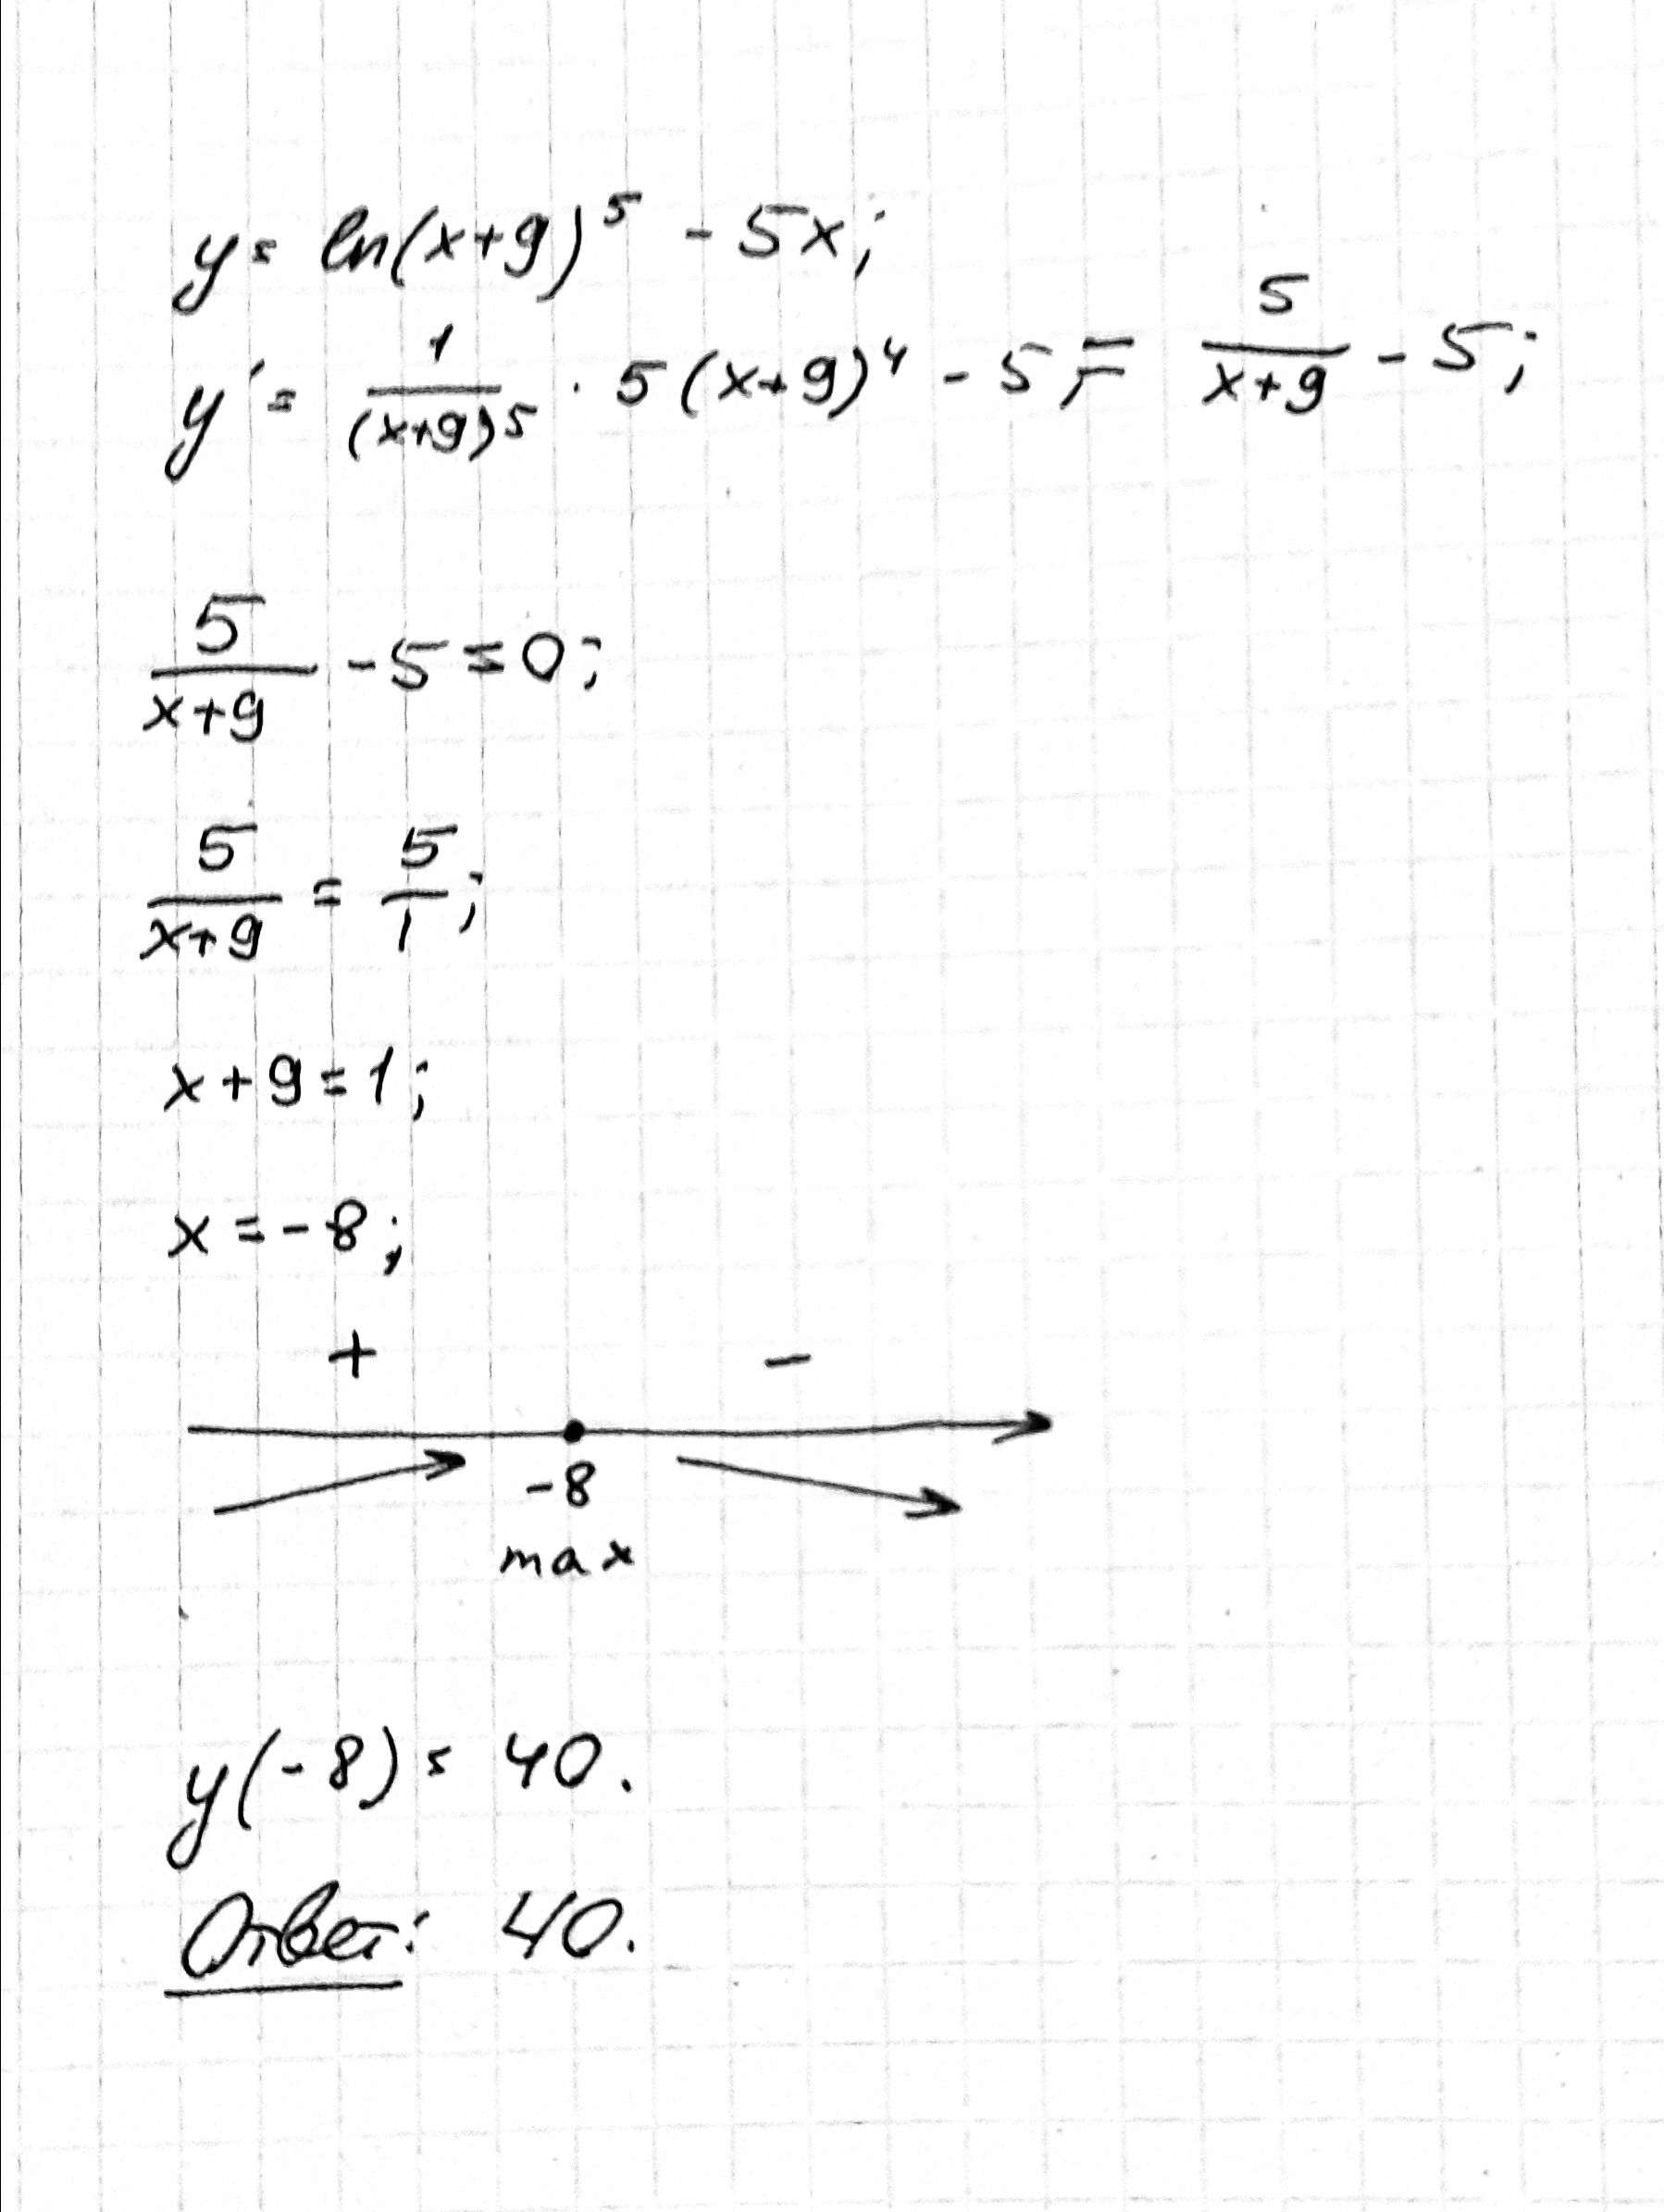 y = ln(x+9)^5 - 5x;
y' = 1/(x+9)^5 · 5(x+9)^4 - 5 = 5/(x+9) - 5;
5/(x+9) - 5 = 0;
5/(x+9) = 5/1;
x+9=1;
x = -8;
+ -
-8
max
y(-8) = 40.
Ответ: 40.